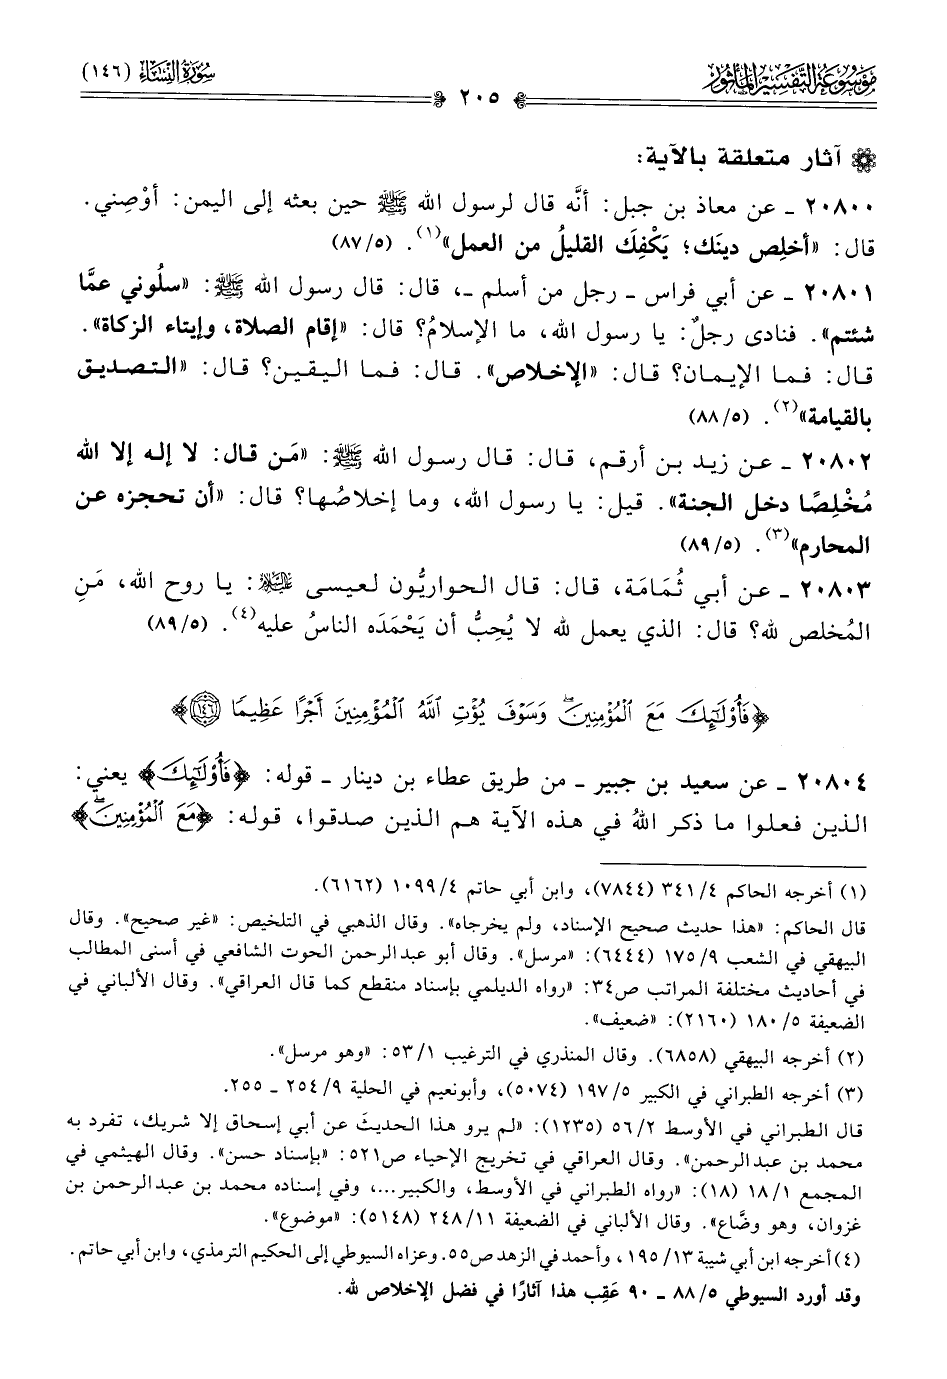 موسوعة التفسير المأثور
سورة النساء (١٤٦)
٢٠٥
آثار متعلقة بالآية:
٢٠٨٠٠ ـ عن معاذ بن جبل: أنَّه قال لرسول الله ﷺ حين بعثه إلى اليمن: أوْصِني.
قال: «أخلِص دينَك؛ يَكْفِكَ القليلُ من العمل»(١). (٨٧/٥)
٢٠٨٠١ ـ عن أبي فراس ـ رجل من أسلم ـ، قال: قال رسول الله ﷺ: «سلُوني عمَّا
شئتم». فنادى رجلٌ: يا رسول الله، ما الإسلامُ؟ قال: «إقام الصلاة، وإيتاء الزكاة».
قال: فما الإيمان؟ قال: «الإخلاص». قال: فما اليقين؟ قال: «التصديق
بالقيامة»(٢). (٨٨/٥)
٢٠٨٠٢ ـ عن زيد بن أرقم، قال: قال رسول الله ﷺ: «مَن قال: لا إله إلا الله
مُخْلِصًا دخل الجنة». قيل: يا رسول الله، وما إخلاصُها؟ قال: «أن تحجزه عن
المحارم»(٣). (٨٩/٥)
٢٠٨٠٣ ـ عن أبي ثُمَامَة، قال: قال الحواريُّون لعيسى عليه السلام: يا روح الله، مَنِ
المُخلص لله؟ قال: الذي يعمل لله لا يُحِبُّ أن يَحْمَدَه الناسُ عليه(٤). (٨٩/٥)
﴿فَأُوْلَٰٓئِكَ مَعَ ٱلْمُؤْمِنِينَۖ وَسَوْفَ يُؤْتِ ٱللَّهُ ٱلْمُؤْمِنِينَ أَجْرًا عَظِيمًا ١٤٦﴾
٢٠٨٠٤ ـ عن سعيد بن جبير ـ من طريق عطاء بن دينار ـ قوله: ﴿فَأُوْلَٰٓئِكَ﴾ يعني:
الذين فعلوا ما ذكر اللهُ في هذه الآية هم الذين صدقوا، قوله: ﴿مَعَ ٱلْمُؤْمِنِينَۖ﴾
(١) أخرجه الحاكم ٣٤١/٤ (٧٨٤٤)، وابن أبي حاتم ١٠٩٩/٤ (٦١٦٢).
قال الحاكم: «هذا حديث صحيح الإسناد، ولم يخرجاه». وقال الذهبي في التلخيص: «غير صحيح». وقال
البيهقي في الشعب ١٧٥/٩ (٦٤٤٤): «مرسل». وقال أبو عبدالرحمن الحوت الشافعي في أسنى المطالب
في أحاديث مختلفة المراتب ص٣٤: «رواه الديلمي بإسناد منقطع كما قال العراقي». وقال الألباني في
الضعيفة ١٨٠/٥ (٢١٦٠): «ضعيف».
(٢) أخرجه البيهقي (٦٨٥٨). وقال المنذري في الترغيب ٥٣/١: «وهو مرسل».
(٣) أخرجه الطبراني في الكبير ١٩٧/٥ (٥٠٧٤)، وأبونعيم في الحلية ٢٥٤/٩ ـ ٢٥٥.
قال الطبراني في الأوسط ٥٦/٢ (١٢٣٥): «لم يرو هذا الحديثَ عن أبي إسحاق إلا شريك، تفرد به
محمد بن عبدالرحمن». وقال العراقي في تخريج الإحياء ص٥٢١: «بإسناد حسن». وقال الهيثمي في
المجمع ١٨/١ (١٨): «رواه الطبراني في الأوسط، والكبير...، وفي إسناده محمد بن عبدالرحمن بن
غزوان، وهو وضَّاع». وقال الألباني في الضعيفة ٢٤٨/١١ (٥١٤٨): «موضوع».
(٤) أخرجه ابن أبي شيبة ١٩٥/١٣، وأحمد في الزهد ص٥٥. وعزاه السيوطي إلى الحكيم الترمذي، وابن أبي حاتم.
وقد أورد السيوطي ٨٨/٥ ـ ٩٠ عَقِب هذا آثارًا في فضل الإخلاص لله.